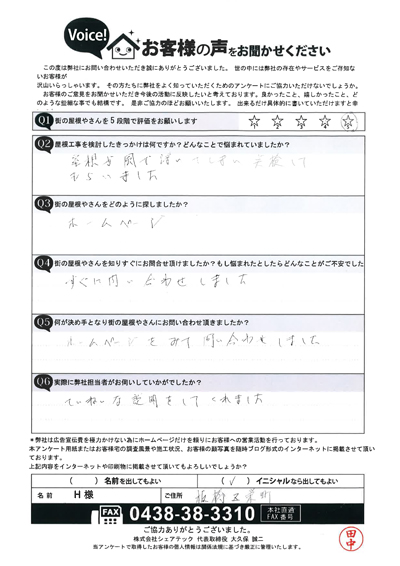 Voice!
お客様の声をお聞かせください
この度は弊社にお問い合わせいただき誠にありがとうございました。 世の中には弊社の存在やサービスをご存知ないお客様が
沢山いらっしゃいます。 その方たちに弊社をよく知っていただくためのアンケートにご協力いただけないでしょうか。
お客様のご意見をお聞かせいただき今後の活動に反映したいと考えております。良かったこと、嬉しかったこと、ど
のような些細な事でも結構です。 是非ご協力のほどお願いいたします。 出来るだけ具体的に書いていただけますと幸
Q1 街の屋根やさんを5段階で評価をお願いします
☆1 ☆2 ☆3 ☆4 ☆5
Q2 屋根工事を検討したきっかけは何ですか？どんなことで悩まれていましたか？
屋根が風で
もらいました
Q3 街の屋根やさんをどのように探しましたか？
ホームページ
Q4 街の屋根やさんを知りすぐにお問合せ頂けましたか？もし悩まれたとしたらどんなことがご不安でした
すぐに問い合わせしました
Q5 何が決め手となり街の屋根やさんにお問い合わせ頂きましたか？
ホームページをみて問い合わせしました
Q6 実際に弊社担当者がお伺いしていかがでしたか？
ていねいな説明をしてくれました
＊弊社は広告宣伝費を極力かけない為にホームページだけを頼りにお客様への営業活動を行っております。
本アンケート用紙またはお客様宅の調査風景や施工状況、お客様の顔写真を随時ブログ形式のインターネットに掲載させて頂いております。
上記内容をインターネットや印刷物に掲載させて頂いてもよろしいでしょうか？
( ) 名前を出してもよい ( ✓ ) イニシャルなら出してもよい
名 前 H 様 ご住所
FAX 0438-38-3310 本社直通 FAX 番号
ご協力ありがとうございました。
株式会社シェアテック 代表取締役 大久保 誠二
当アンケートで取得したお客様の個人情報は関係法規に基づき厳正に管理いたします。
田中